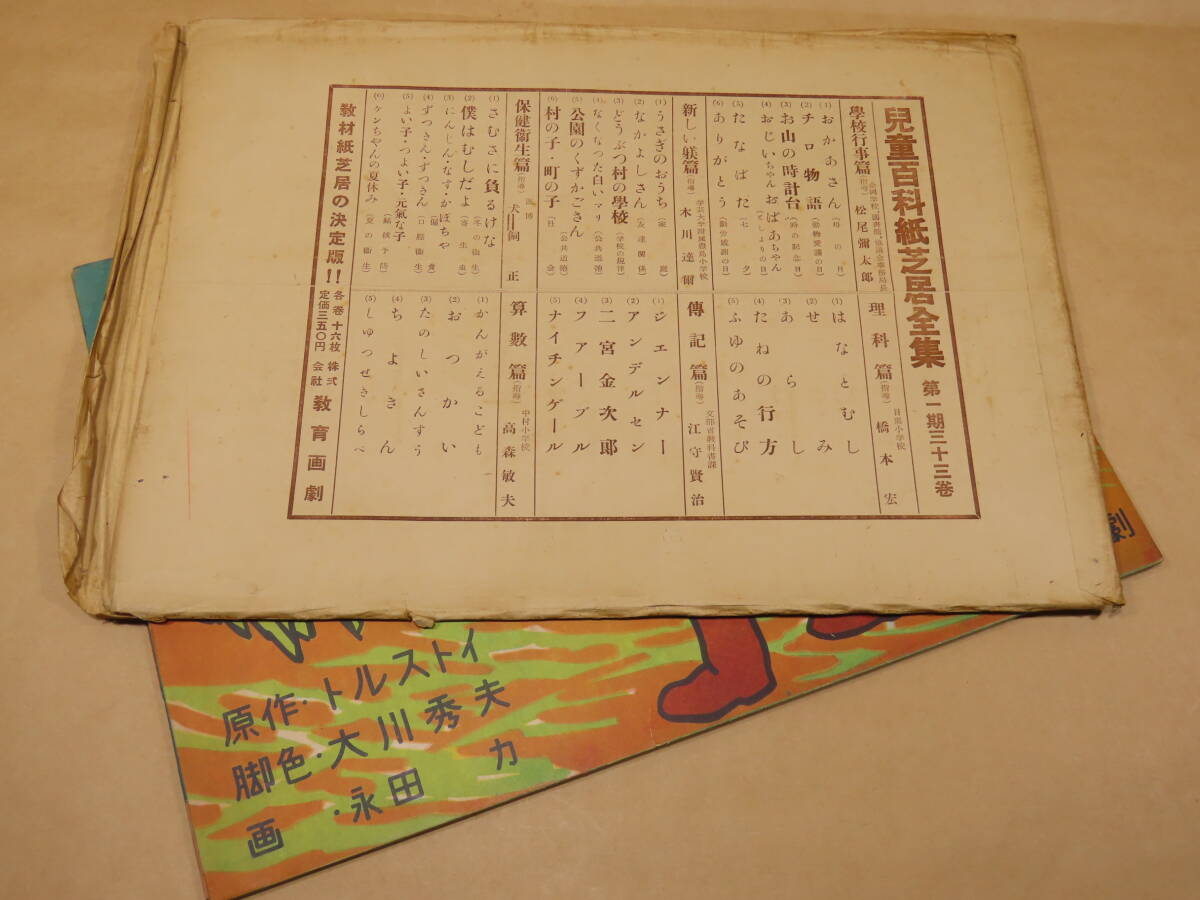 兒童百科紙芝居全集 第一期三十三巻
學校行事篇(指導) 全國学校図書館協議会事務局長 松尾彌太郎
(1) おかあさん (母の日)
(2) チロ物語 (動物愛護の日)
(3) お山の時計台 (時の記念日)
(4) おじいちゃんおばあちゃん (としよりの日)
(5) たなばた (七夕)
(6) ありがとう (勤労感謝の日)
理科篇(指導) 日進小学校 橋本宏
(1) はなとむし
(2) せみ
(3) あらし
(4) たねの行方
(5) ふゆのあそび
新しい躾篇(指導) 学芸大学附属豊島小学校 木川達爾
(1) うさぎのおうち (家庭)
(2) なかよしさん (友達関係)
(3) どうぶつ村の學校 (学校の規律)
(4) なくなつた白いマリ (公共道徳)
(5) 公園のくずかごさん (公共道徳)
(6) 村の子・町の子 (社会)
傳記篇(指導) 文部省教科書課 江守賢治
(1) ジエンナー
(2) アンデルセン
(3) 二宮金次郎
(4) フアーブル
(5) ナイチンゲール
保健衞生篇(指導) 医博 犬飼正
(1) さむさに負るけな (冬の衞生)
(2) 僕はむしだよ (寄生虫)
(3) にんじん・なす・かぼちゃ (偏食)
(4) ずつきんずつきん (口腔衞生)
(5) よい子・つよい子・元氣な子
(6) ケンちゃんの夏休み (夏の衞生)
算数篇(指導) 中村小学校 高森敏夫
(1) かんがえるこども
(2) おつかい
(3) たのしいさんすう
(4) ちよきん
(5) しゆつせきしらべ
敎材紙芝居の決定版!! 各巻十六枚 定価三五〇円 株式会社 敎育画劇
劇
原作・トルストイ
脚色・大川秀夫
画・永田力